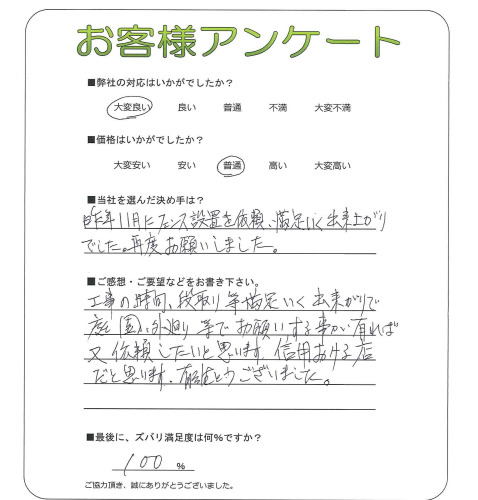 お客様アンケート
■弊社の対応はいかがでしたか？
大変良い 良い 普通 不満 大変不満
■価格はいかがでしたか？
大変安い 安い 普通 高い 大変高い
■当社を選んだ決め手は？
昨年11月にフェンス設置を依頼、満足いく出来上がり
でした。再度お願いしました。
■ご感想・ご要望などをお書き下さい。
工事の時間、段取り等満足いく出来上がりで
庭園、水廻り等でお願いする事が有れば
又依頼したいと思います。信用おける店
だと思います。有難とうございました。
■最後に、ズバリ満足度は何%ですか？
100 %
ご協力頂き、誠にありがとうございました。